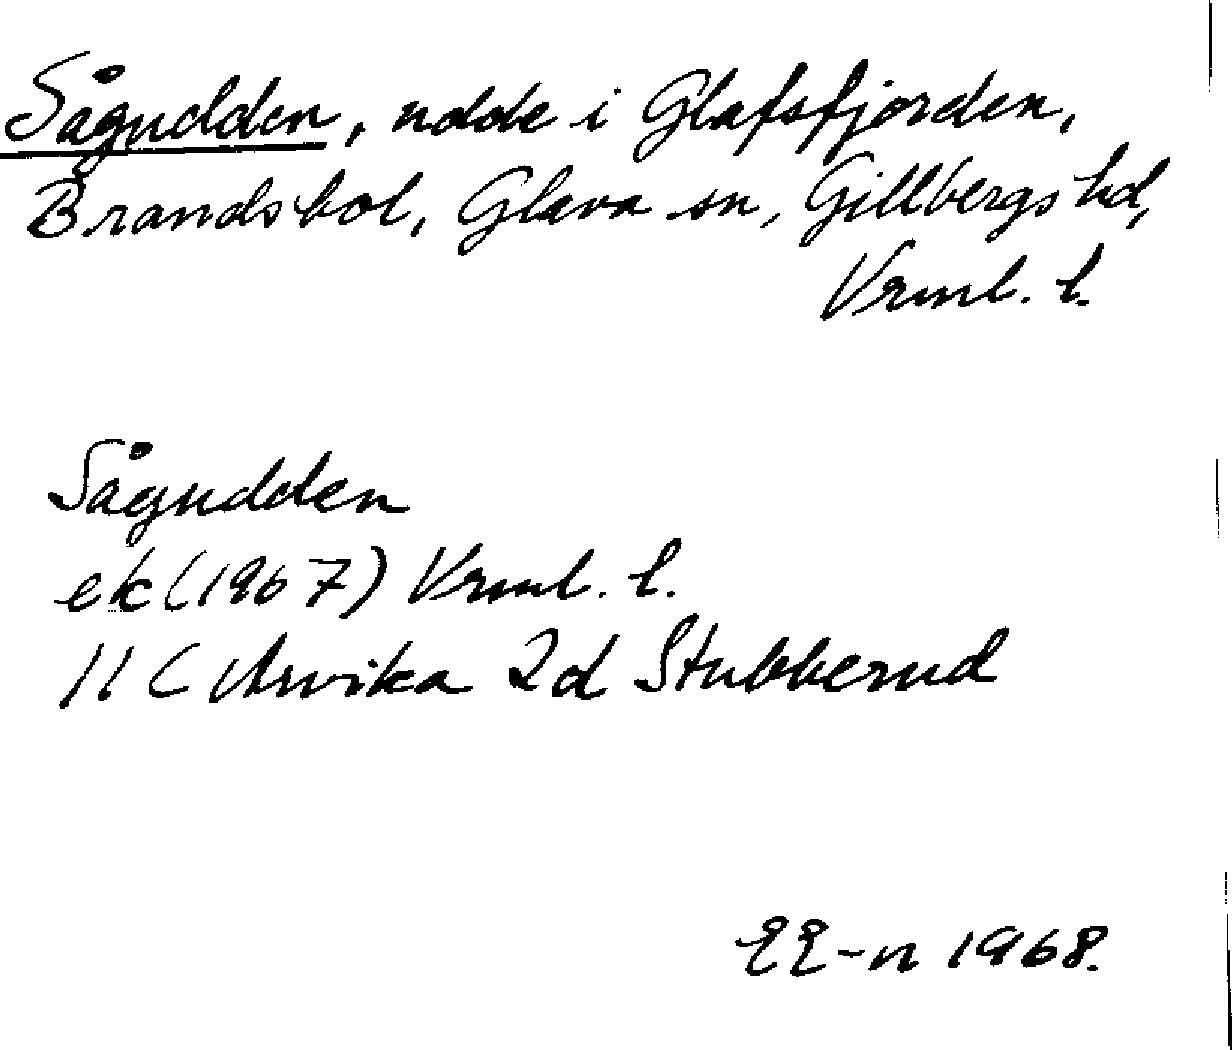 Sågudden, udde i Glafsfjorden,
Brandsbol, Glava sn, Gillbergs hd,
Vrml. l.
Sågudden
ek (1967) Vrml. l.
11 C Arvika 2d Stubberud
EE-n 1968.